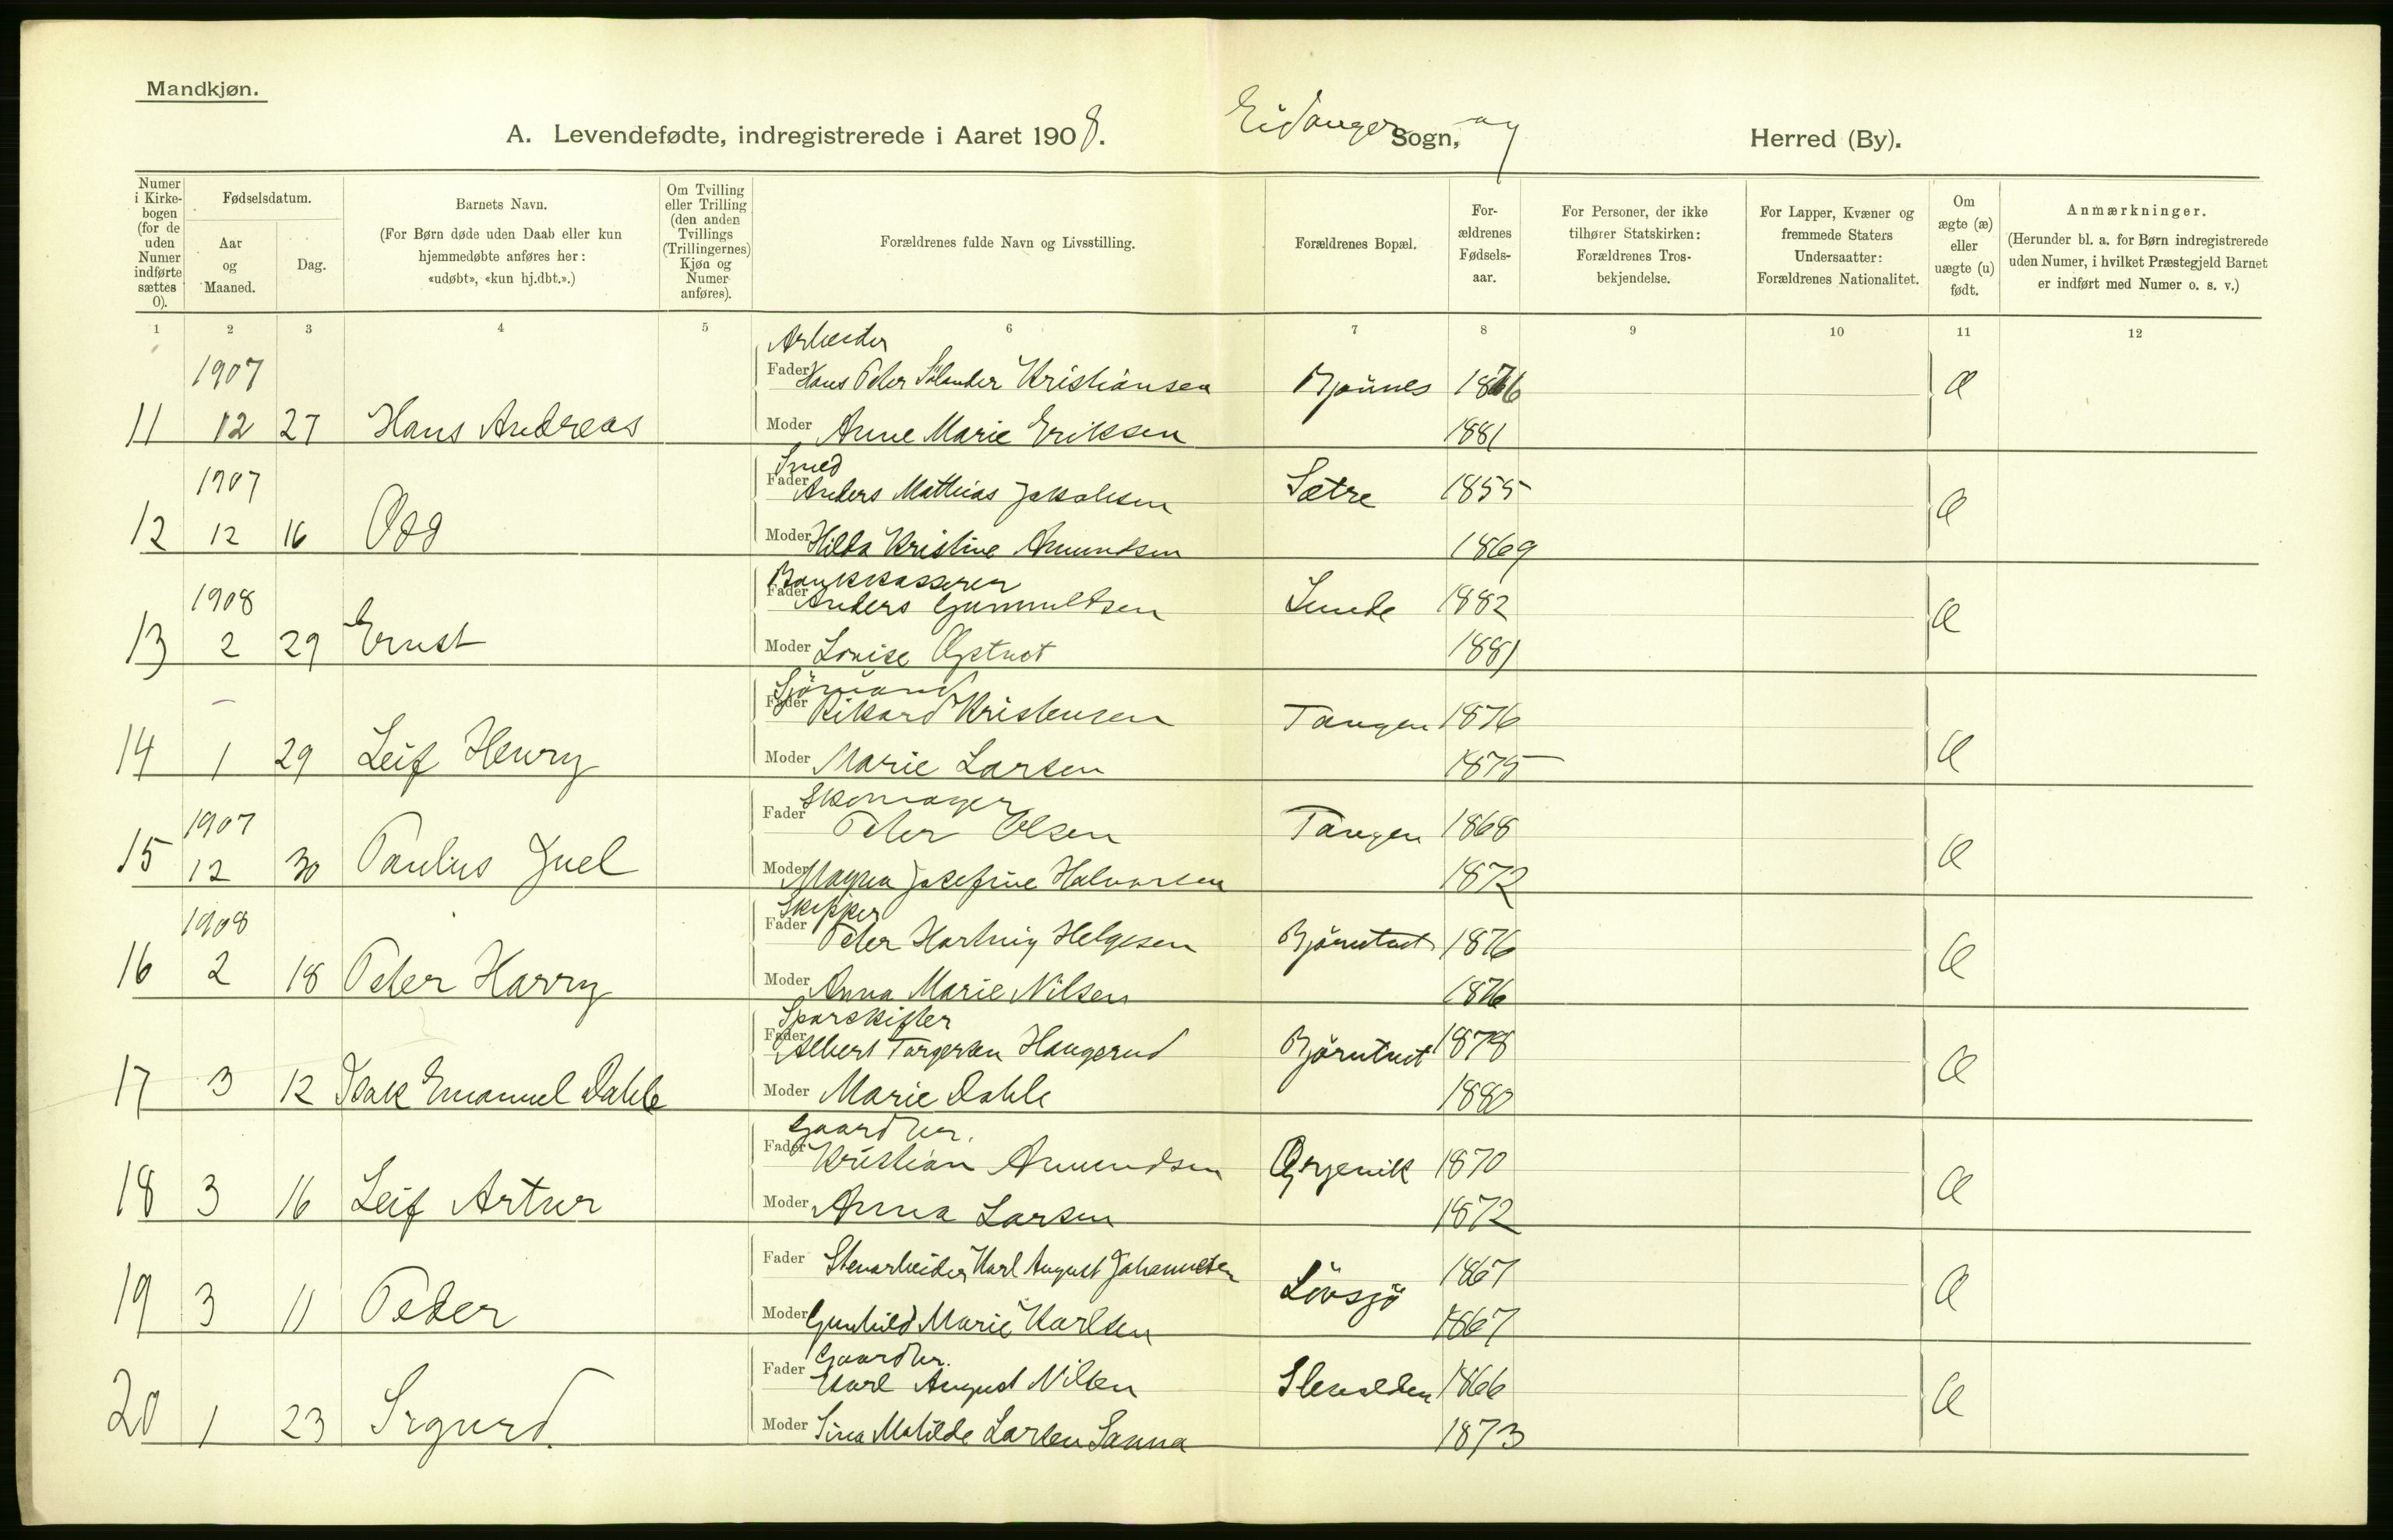 Mandkjøn.
A. Levendefødte, indregistrerede i Aaret 1908. Eidanger Sogn, og Herred (By).
Numer i Kirkebogen (for de uden Numer indførte sættes 0).
Fødselsdatum.
Aar og Maaned.
Dag.
Barnets Navn.
(For Børn døde uden Daab eller kun hjemmedøbte anføres her: «udøbt», «kun hj.dbt.».)
Om Tvilling eller Trilling (den anden Tvillings (Trillingernes) Kjøn og Numer anføres).
Forældrenes fulde Navn og Livsstilling.
Forældrenes Bopæl.
Forældrenes Fødselsaar.
For Personer, der ikke tilhører Statskirken: Forældrenes Trosbekjendelse.
For Lapper, Kvæner og fremmede Staters Undersaatter: Forældrenes Nationalitet.
Om ægte (æ) eller uægte (u) født.
Anmærkninger.
(Herunder bl. a. for Børn indregistrerede uden Numer, i hvilket Præstegjeld Barnet er indført med Numer o. s. v.)
1 2 3 4 5 6 7 8 9 10 11 12
Arbeider
1907 Fader Hans Peter Kristiansen Bjønnes 1876 Æ
11 12 27 Hans Andreas Moder Anne Marie Eriksen 1881
Smed
1907 Fader Anders Mathias Jakobsen Sætre 1855 Æ
12 12 16 Odd Moder Hilda Kristine Amundsen 1869
Bankkasserer
1908 Fader Anders Gunnuldsen Lunde 1882 Æ
13 2 29 Ernst Moder Lovise Opstvet 1881
Sjömand
Fader Rikard Kristensen Tangen 1876
14 1 29 Leif Henry Moder Marie Larsen 1875 Æ
Skomager
1907 Fader Peter Olsen Tangen 1868
15 12 30 Paulus Juel Moder Magna Josefine Halvorsen 1872 Æ
Skipper
1908 Fader Peter Hartvig Helgesen Bjørntvet 1876 Æ
16 2 18 Peter Harry Moder Anna Marie Nilsen 1876
Sporskifter
Fader Albert Torgersen Haugerud Bjørntvet 1878 Æ
17 3 12 Isak Emanuel Dahle Moder Marie Dahle 1880
Gaardbr.
Fader Kristian Amundsen Ørvik 1870
18 3 16 Leif Artur Moder Anna Larsen 1872 Æ
Fader Stenarbeider Karl August Johannesen Lövsjö 1867
19 3 11 Peder Moder Gunhild Marie Karlsen 1867 Æ
Gaardbr.
Fader Karl August Nilsen 1866
20 1 23 Sigurd. Moder Sina Matilde Larsen Sanna 1873 Æ